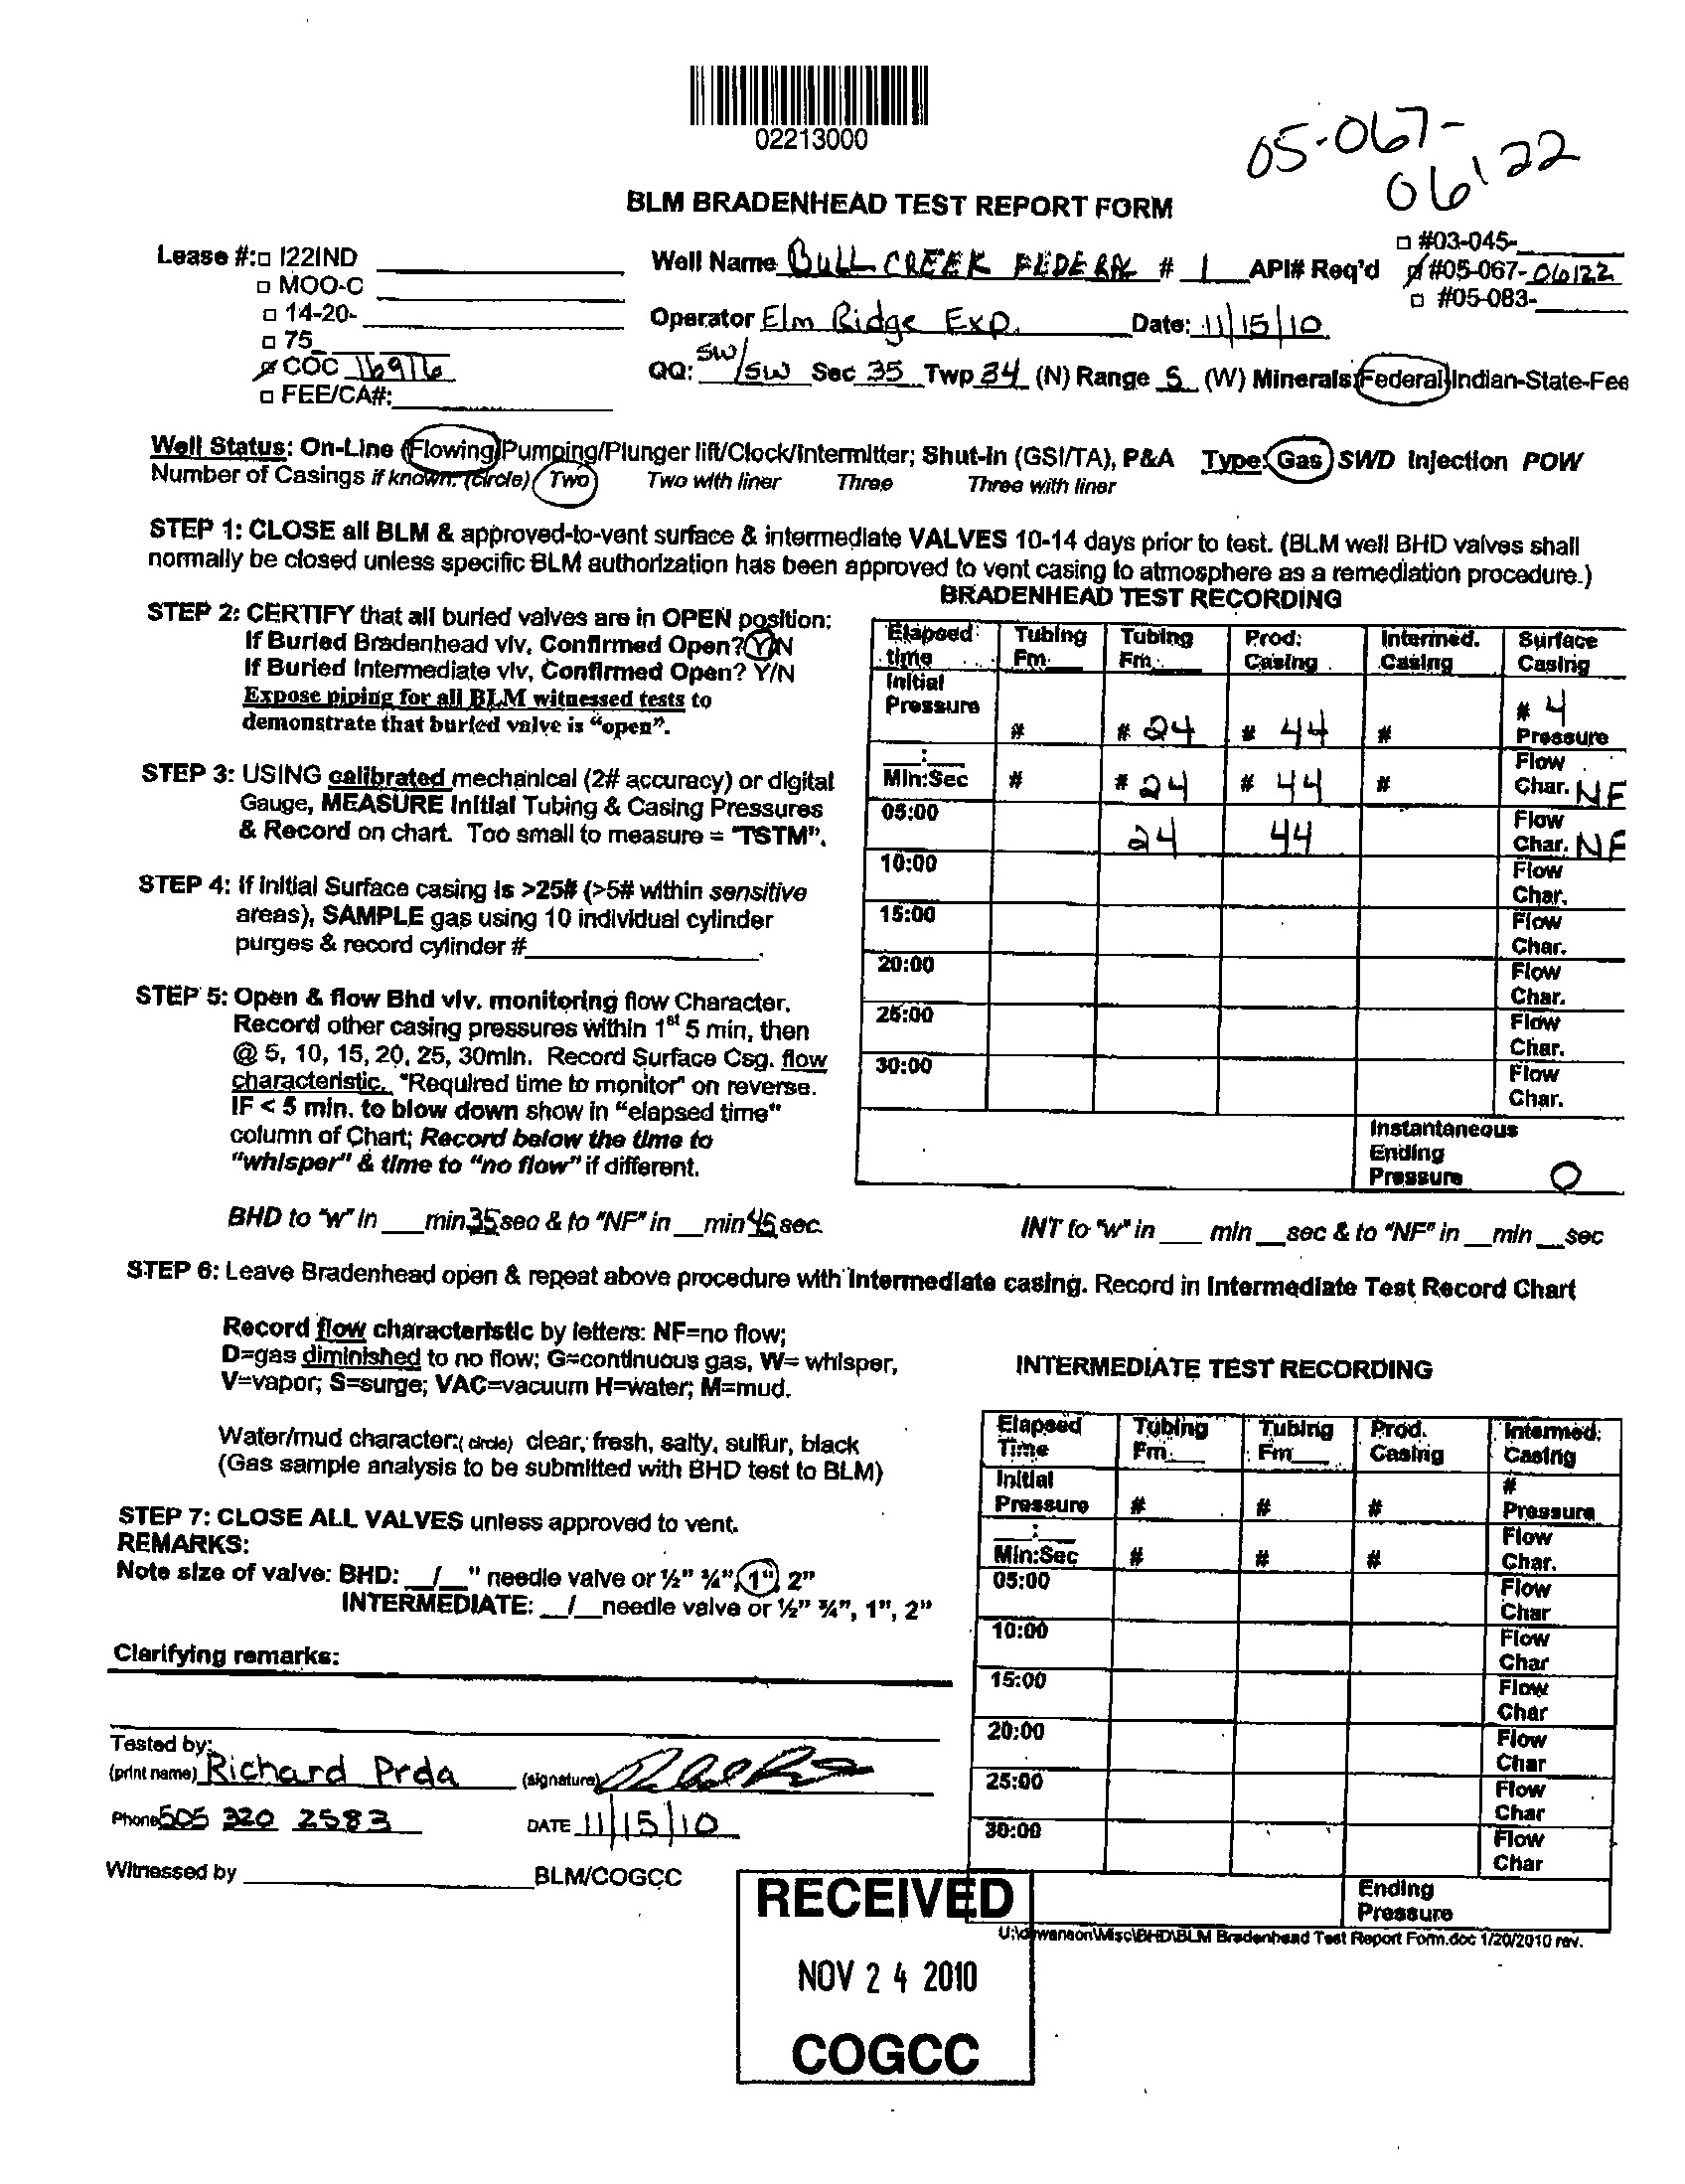 02213000
05-067-
06122
BLM BRADENHEAD TEST REPORT FORM
Lease #:□ I22IND
□ MOO-C
□ 14-20-
□ 75_
COC 16916
□ FEE/CA#:
Well Name BULL CREEK FEDERAL # 1 API# Req'd
□ #03-045-
#05-067-06122
□ #05-083-
Operator Elm Ridge Exp. Date: 11/15/10
QQ: SW/SW Sec 35 Twp 34 (N) Range 5 (W) Minerals: Federal/Indian-State-Fee
Well Status: On-Line (Flowing/Pumping/Plunger lift/Clock/Intermitter; Shut-In (GSI/TA), P&A Type: Gas SWD Injection POW
Number of Casings if known: (circle) Two Two with liner Three Three with liner
STEP 1: CLOSE all BLM & approved-to-vent surface & intermediate VALVES 10-14 days prior to test. (BLM well BHD valves shall
normally be closed unless specific BLM authorization has been approved to vent casing to atmosphere as a remediation procedure.)
STEP 2: CERTIFY that all buried valves are in OPEN position:
If Buried Bradenhead vlv, Confirmed Open? Y/N
If Buried Intermediate vlv, Confirmed Open? Y/N
Expose piping for all BLM witnessed tests to
demonstrate that buried valve is "open".
STEP 3: USING calibrated mechanical (2# accuracy) or digital
Gauge, MEASURE Initial Tubing & Casing Pressures
& Record on chart. Too small to measure = "TSTM".
STEP 4: If initial Surface casing is >25# (>5# within sensitive
areas), SAMPLE gas using 10 individual cylinder
purges & record cylinder #
STEP 5: Open & flow Bhd vlv. monitoring flow Character.
Record other casing pressures within 1st 5 min, then
@ 5, 10, 15, 20, 25, 30min. Record Surface Csg. flow
characteristic. "Required time to monitor" on reverse.
IF < 5 min. to blow down show in "elapsed time"
column of Chart; Record below the time to
"whisper" & time to "no flow" if different.
BRADENHEAD TEST RECORDING
Elapsed time Tubing Fm. Tubing Fm. Prod. Casing Intermed. Casing Surface Casing
Initial Pressure # # 24 # 44 # # 4 Pressure
__:__ Min:Sec # # 24 # 44 # Flow Char. NF
05:00 24 44 Flow Char. NF
10:00 Flow Char.
15:00 Flow Char.
20:00 Flow Char.
25:00 Flow Char.
30:00 Flow Char.
Instantaneous Ending Pressure 0
BHD to "w" in ___min 35 sec & to "NF" in __min 45 sec.
INT to "w" in ___ min __sec & to "NF" in __min __sec
STEP 6: Leave Bradenhead open & repeat above procedure with Intermediate casing. Record in Intermediate Test Record Chart
Record flow characteristic by letters: NF=no flow;
D=gas diminished to no flow; G=continuous gas, W= whisper,
V=vapor; S=surge; VAC=vacuum H=water; M=mud.
Water/mud character:( circle) clear, fresh, salty, sulfur, black
(Gas sample analysis to be submitted with BHD test to BLM)
STEP 7: CLOSE ALL VALVES unless approved to vent.
REMARKS:
Note size of valve: BHD: __/__" needle valve or ½" ¾", 1", 2"
INTERMEDIATE: __/__needle valve or ½" ¾", 1", 2"
Clarifying remarks:
INTERMEDIATE TEST RECORDING
Elapsed Time Tubing Fm. Tubing Fm Prod. Casing Intermed. Casing
Initial Pressure # # # # Pressure
__:__ Min:Sec # # # Flow Char.
05:00 Flow Char
10:00 Flow Char
15:00 Flow Char
20:00 Flow Char
25:00 Flow Char
30:00 Flow Char
Ending Pressure
Tested by:
(print name) Richard Prda (signature)
Phone 505 320 2583 DATE 11/15/10
Witnessed by BLM/COGCC
U:\dswanson\Misc\BHD\BLM Bradenhead Test Report Form.doc 1/20/2010 rev.
RECEIVED
NOV 24 2010
COGCC